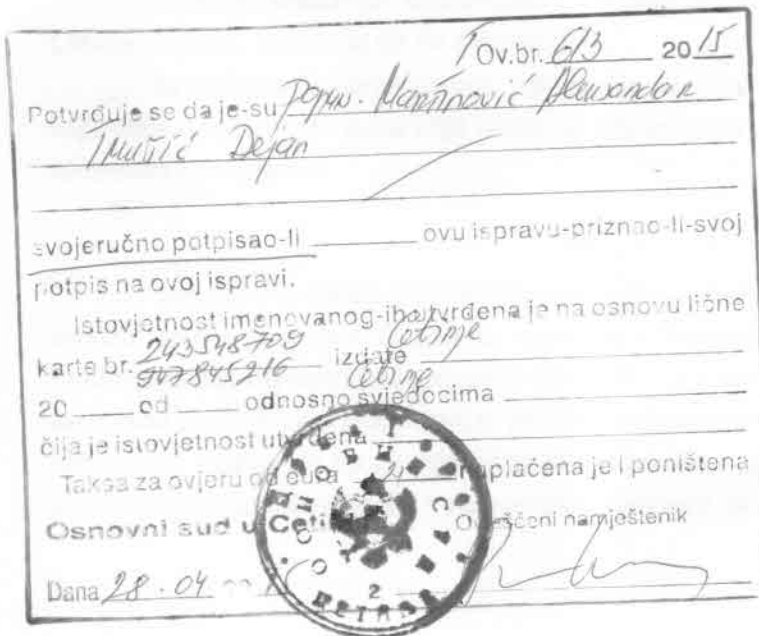 Ov.br. 613 2015
Potvrđuje se da je-su Popun. Martinović Alexandar
Dejan
svojeručno potpisao-li ovu ispravu-priznao-li-svoj
potpis na ovoj ispravi.
Istovjetnost imenovanog-ih utvrđena je na osnovu lične
karte br. 243548709 izdate Cetinje
947845216 Cetinje
20 od odnosno svjedocima
čija je istovjetnost utvrđena
Taksa za ovjeru od eura naplaćena je i poništena
Osnovni sud u Ceti Ovlašćeni namještenik
Dana 28.04
2